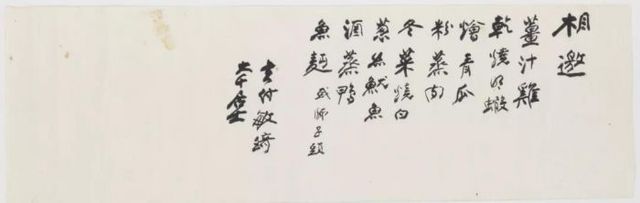 相邀
薑汁雞
乾燒明蝦
燴青瓜
粉蒸肉
冬菜燒白
蔥絲魷魚
酒蒸鴨
魚麵 或師子頭
付敏
大千居士